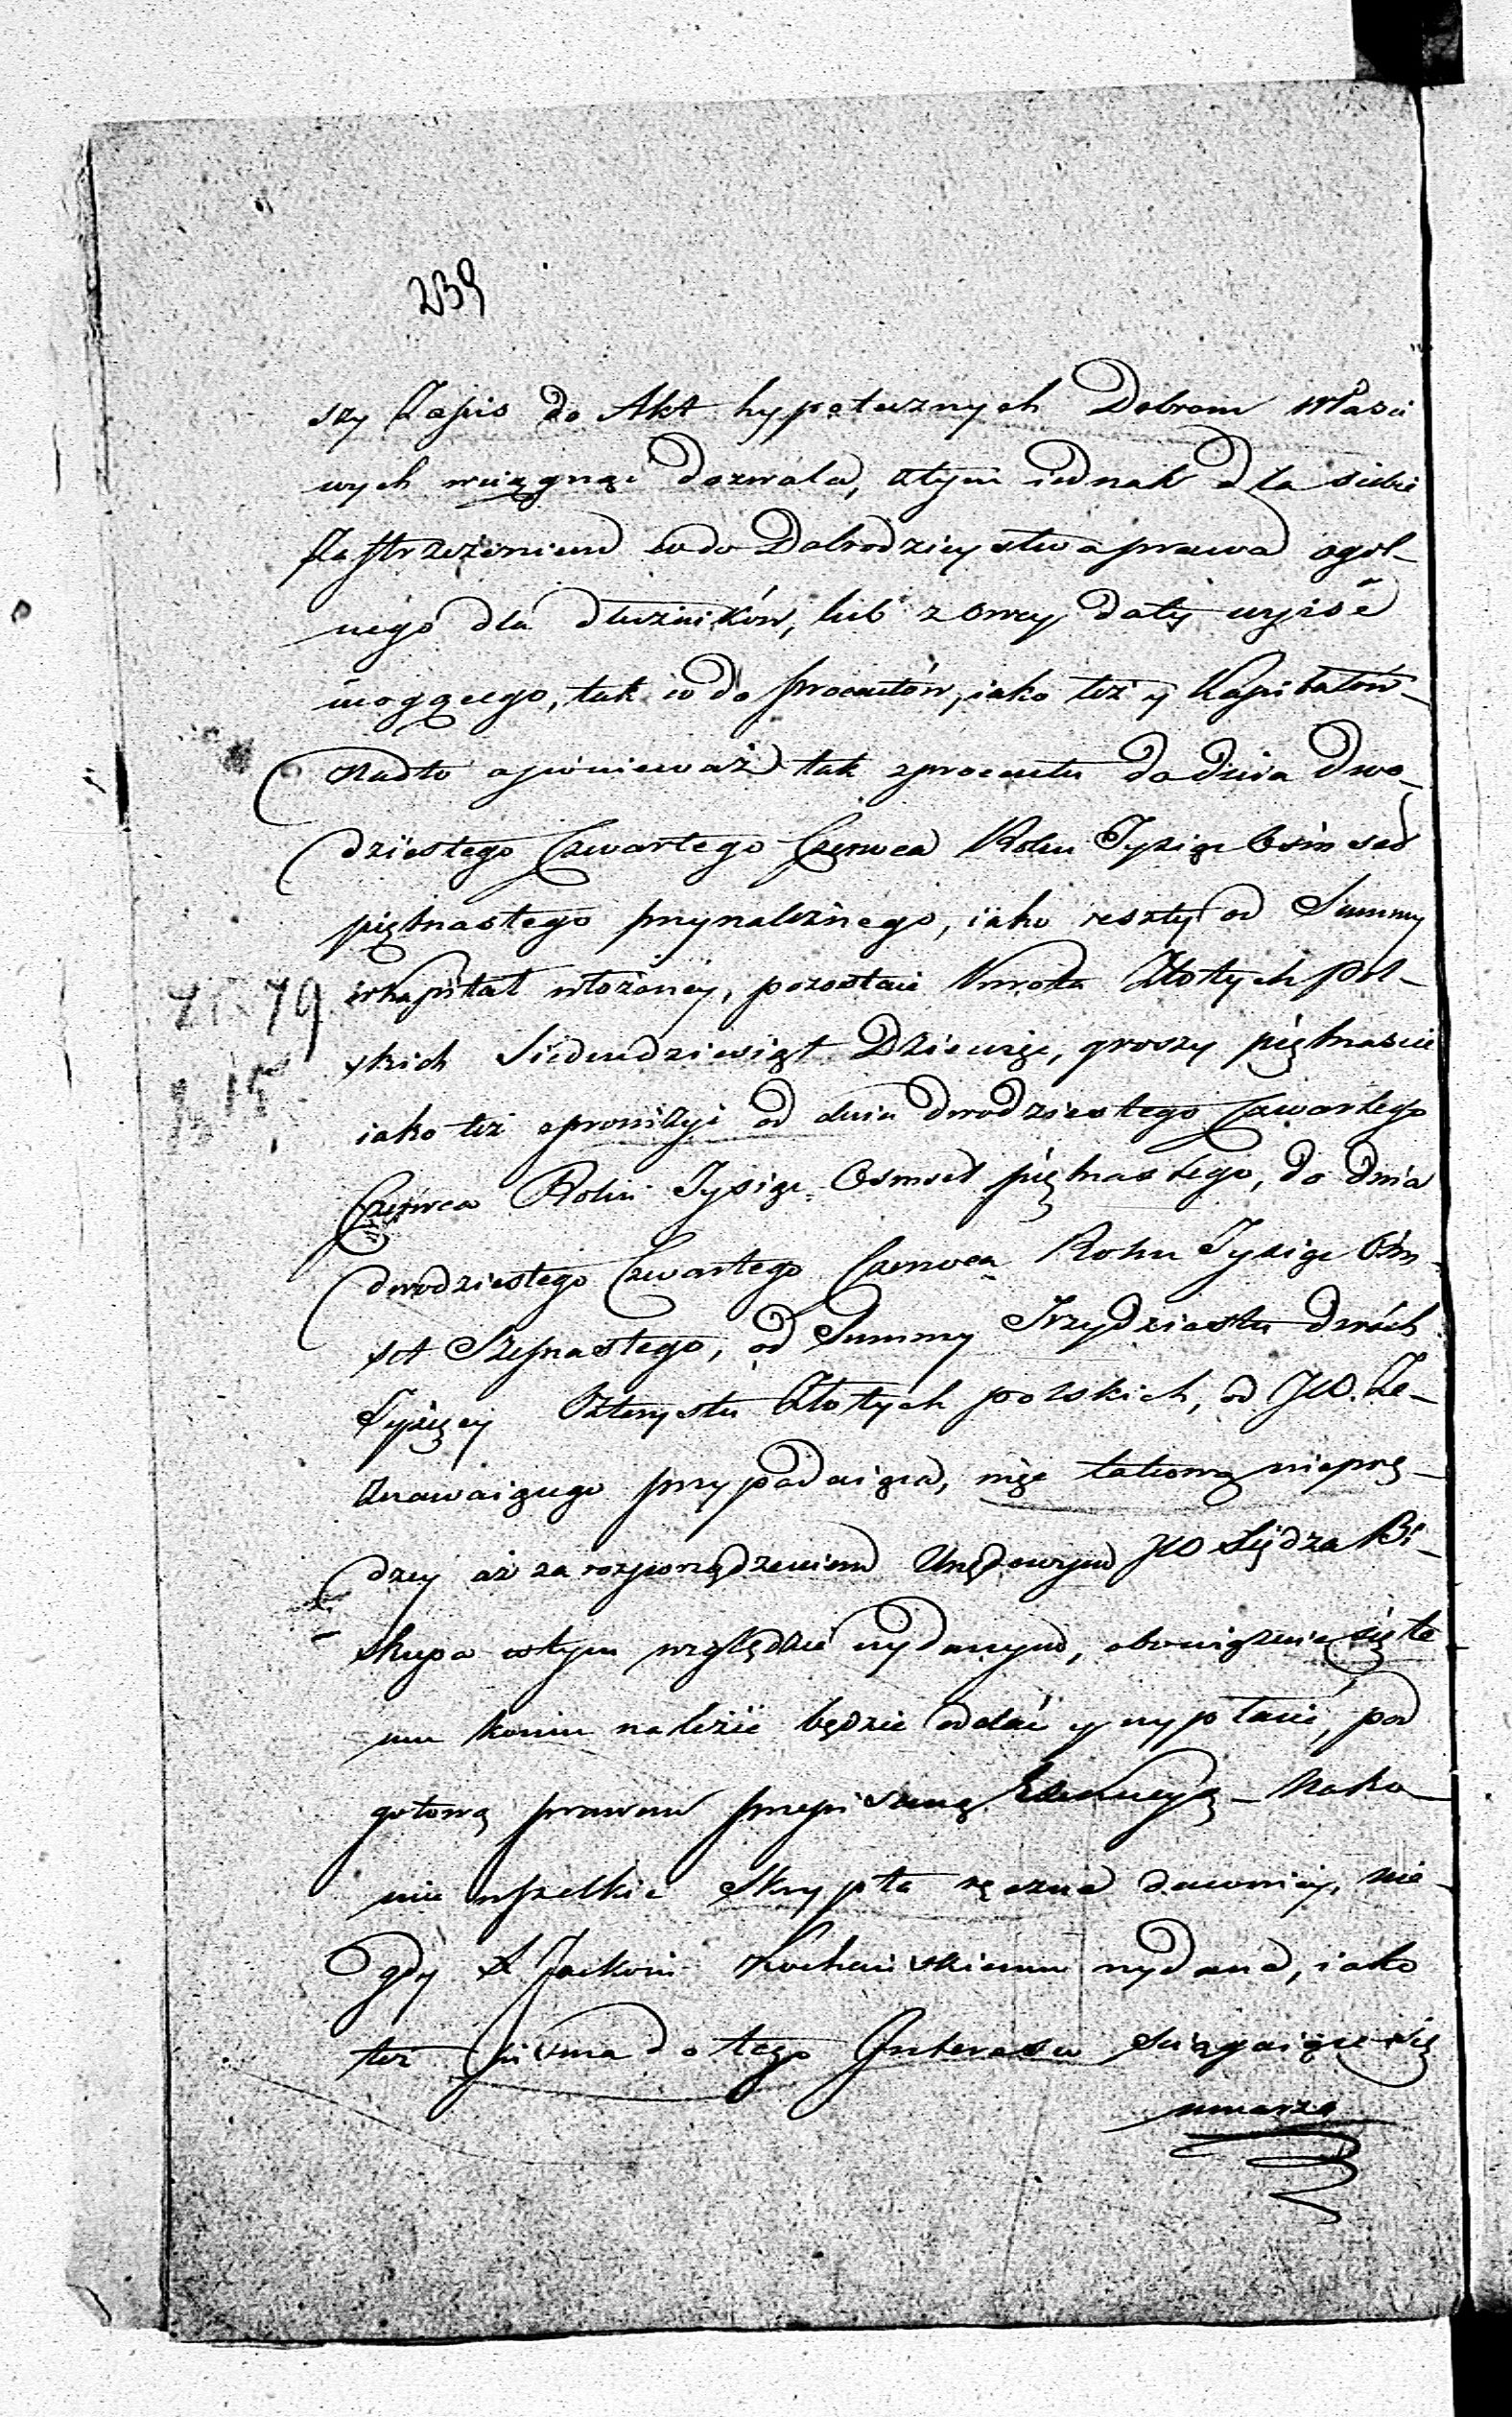 239
szy Zapis do Akt hypotecznych Dobrom właści
wych wciągnąć dozwala, ztym iednak dla siebie
Zastrzeżeniem codo Dobrodzieystwa prawa ogol-
nego dla dłużników, lub z owey daty wyiść
mogącego, tak co do procentów, iako też y Kapitałów-
Nadto a ponieważ tak z procentu do dnia dwo-
dziestego Czwartego Czerwca Roku Tysiąc Osim set
piętnastego przynależnego, iako reszty od Summy
w kapitał włożoney, pozostaie kwota Złotych Pol-
79
skich Siedmdziesiąt Dziewięć, groszy piętnaście
15
iako też z prowizyi od dnia dwodziestego Czwartego
Czerwca Roku Tysiąc Osmset piętnastego, do dnia
dwodziestego Czwartego Czerwca Roku Tysiąc Ośm
set Szesnastego, od Summy Trzydziestu dwóch
Tysięcy Czterystu Złotych polskich, od JW. Ze-
znawaiącego przypadaiąca, więc takową nieprę-
dzey aż za rozporządzeniem Urzędowym JW Xiędza Bi-
skupa wtym względzie wydanym, obowiązuie się te
mu komu należić będzie oddać y wypłacić, pod
gotową prawem przepisaną Exekucyą - Nako-
nie wszelkie Skrypta ręczne dawniey, nie-
gdy X Jackowi wydane, iako
też pisma do tego Interessu sciągaiące się
umarza